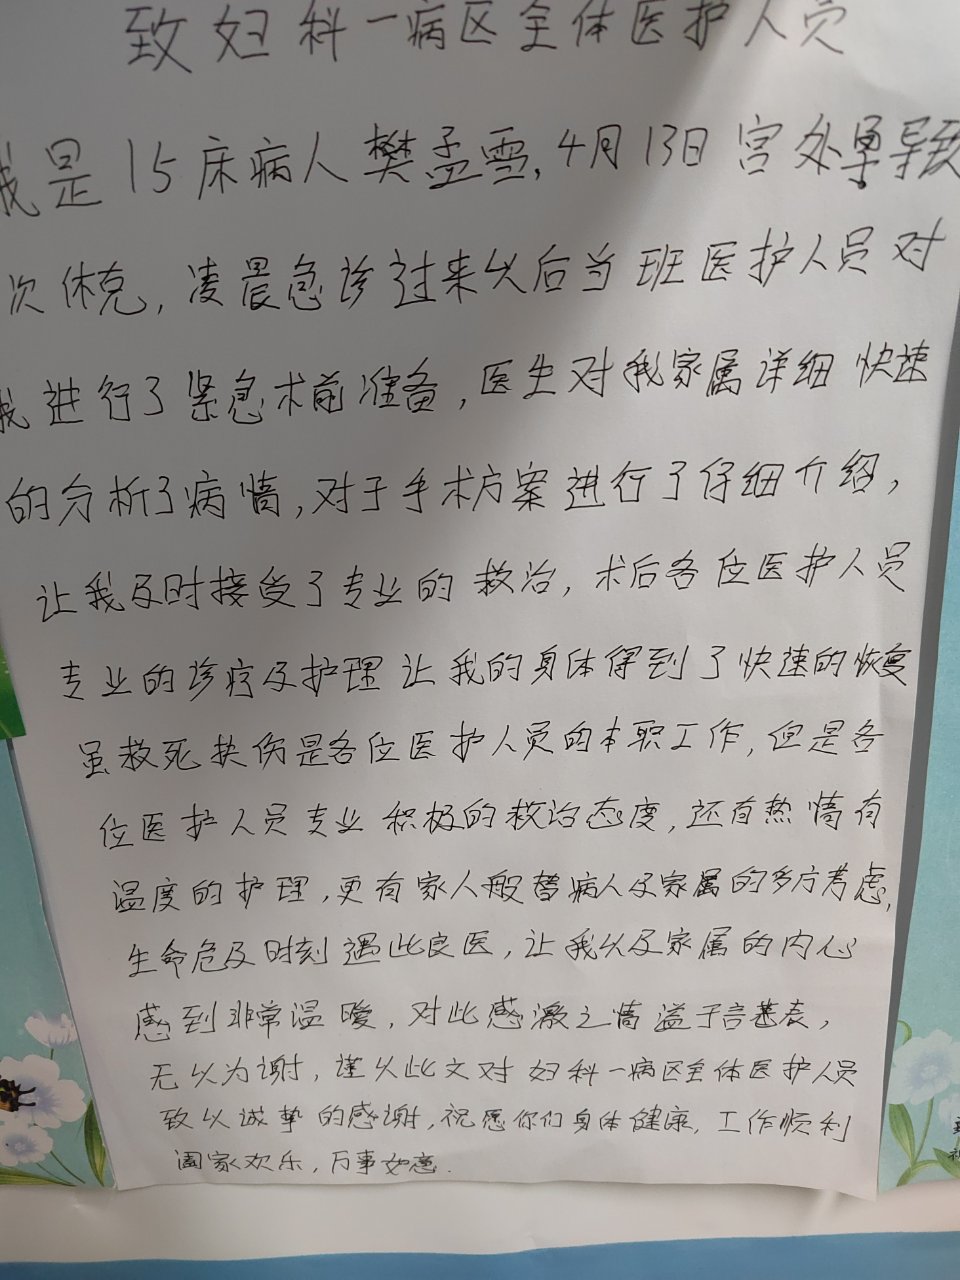 致妇科一病区全体医护人员
我是15床病人樊孟雪,4月13日宫外孕导致
次休克,凌晨急诊过来以后当班医护人员对
我进行了紧急术前准备,医生对我家属详细快速
的分析了病情,对于手术方案进行了仔细介绍,
让我及时接受了专业的救治,术后各位医护人员
专业的诊疗及护理让我的身体得到了快速的恢复
虽救死扶伤是各位医护人员的本职工作,但是各
位医护人员专业积极的救治态度,还有热情有
温度的护理,更有家人般替病人及家属的多方考虑,
生命危及时刻遇此良医,让我以及家属的内心
感到非常温暖,对此感激之情溢于言表,
无以为谢,谨以此文对妇科一病区全体医护人员
致以诚挚的感谢,祝愿你们身体健康,工作顺利
阖家欢乐,万事如意.